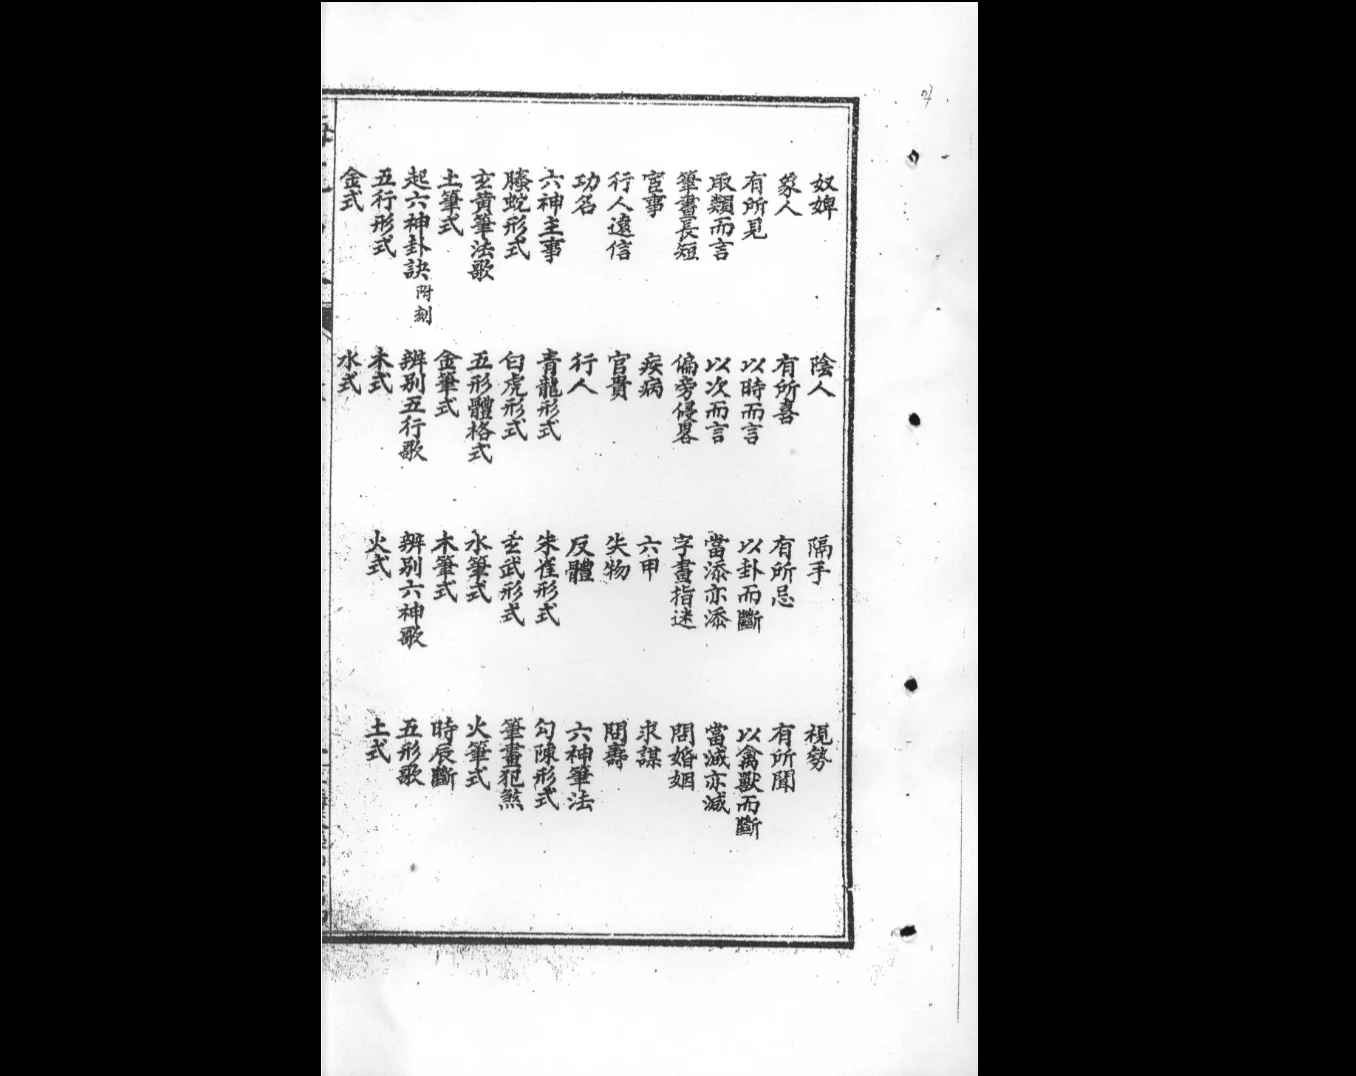 奴婢 陰人 隔手 視勢
象人 有所喜 有所忌 有所聞
有所見 以時而言 以卦而斷 以禽獸而斷
取類而言 以次而言 當添亦添 當減亦減
筆畫長短 偏旁侵畧 字畫指迷 問婚姻
官事 疾病 六甲 求謀
行人遠信 官貴 失物 問壽
功名 行人 反體 六神筆法
六神主事 青龍形式 朱雀形式 勾陳形式
螣蛇形式 白虎形式 玄武形式 筆畫犯煞
玄黃筆法歌 五形體格式 水筆式 火筆式
土筆式 金筆式 木筆式 時辰斷
起六神卦訣附刻 辨別五行歌 辨別六神歌 五形歌
五行形式 木式 火式 土式
金式 水式